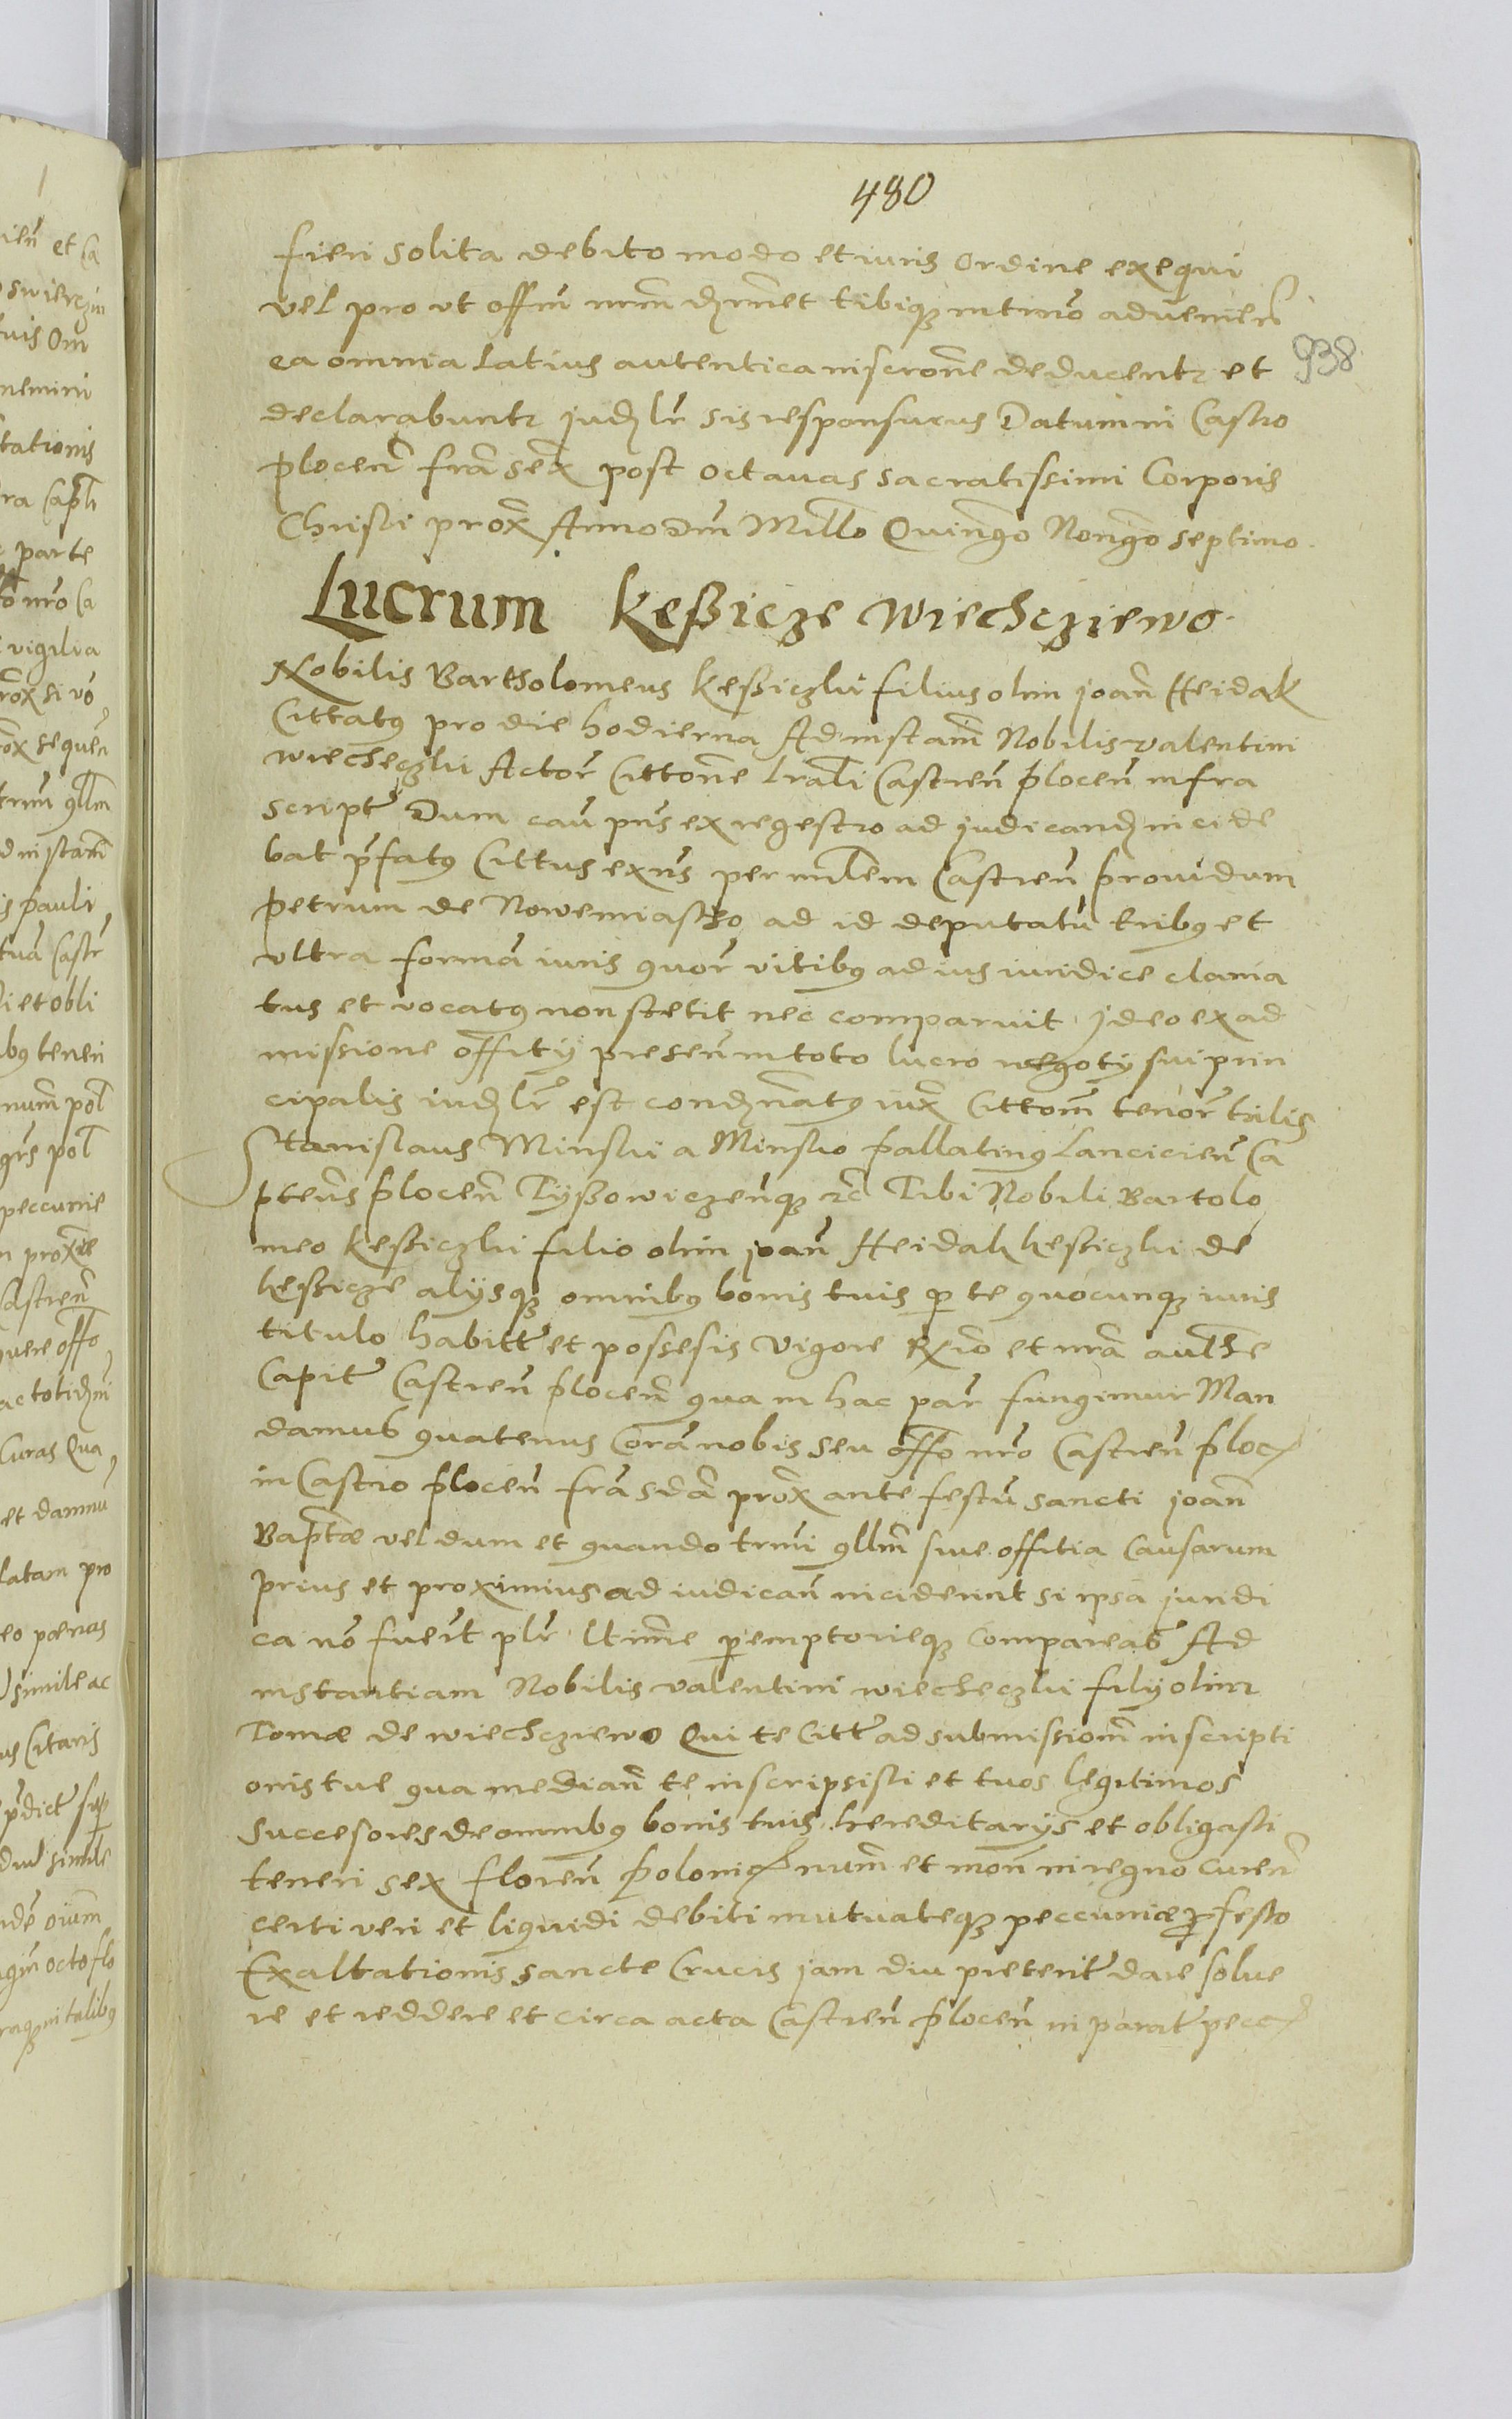 480
fieri solita debito modo et iuris ordine exequi
vel pro ut offm nrm dznnet tibiqz in trno advenien
ea omnia latius autentica inscrone deducentr et 938
declarabuntr judzlr sis responsurus Datum in Castro
plocen fra sex post octavas sacratissimi Corporis
Christi prox Anno Dm Millo Quingo Nongo septimo.
Lucrum Keßicze Wiechcziewo.
Nobilis Bartholomeus Keßiczki filius olim joan Heidak
Cittatus pro die hodierna Ad instam Nobilis valentini
wiecheczki Actor Cittone lrali Castren plocen infra
script Dum cau pns ex regestro ad judicandz incide
bat pfatus Cittus exns per mlem Castren providum
petrum de Nowemiasto ad id deputatu tribus et
ultra forma iuris quor vitibus ad ius iuridice clama
tus et vocatus non stetit nec comparuit jdeo ex ad
missione offitij presen in toto lucro negotij sui prin
cipalis iudzlr est condznatus iux Cittom tenor talis
Stanislaus Minski a Minsko pallatinus Lancicien Ca
ptens plocen Tyßowiczenqz rc Tibi Nobili Bartolo
meo Keßiczki filio olim joan Heidak keßiczki de
keßicze alijsqz omnibus bonis tuis p te quocunqz iuris
titulo habitt et possesis Vigore Rxio et nra authe
Capit Castren plocen qua in hac par fungimur Man
damus quatenus Cora nobis seu offo nro Castren ploc
in Castro plocen fra sda prox ante festu sancti joan
Baptæ vel dum et quando trmi qllm sive offitia Causarum
prius et proximius ad iudican inciderint si ipsa juridi
ca no fuerit plr ltime pemptorieqz Compareas Ad
instantiam Nobilis valentini wiecheczki filij olim
Tomæ de wiechcziewo Qui te Citt ad submissiom inscripti
onis tue qua median te inscripsisti et tuos legitimos
succesores de omnibus bonis tuis hereditarijs et obligasti
teneri sex floren polonic num et mon in regno Curen
certi veri et liquidi debiti mutuateqz peccuniæ p festo
Exaltationis sancte Crucis jam diu preterit dare solve
re et reddere et circa acta Castren plocen in parat pecc